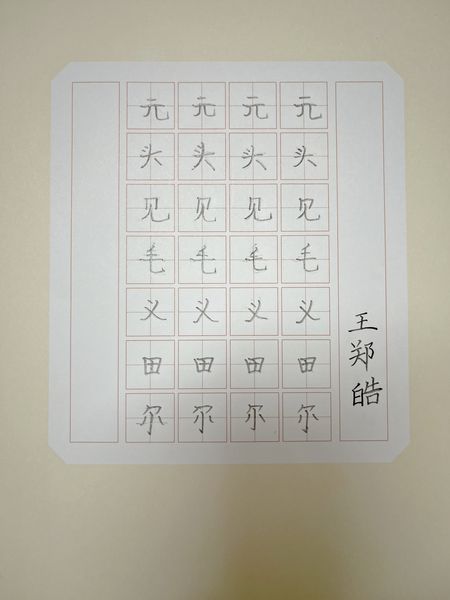 元元元元
头头头头
见见见见
毛毛毛毛
义义义义
田田田田
尔尔尔尔
王郑皓